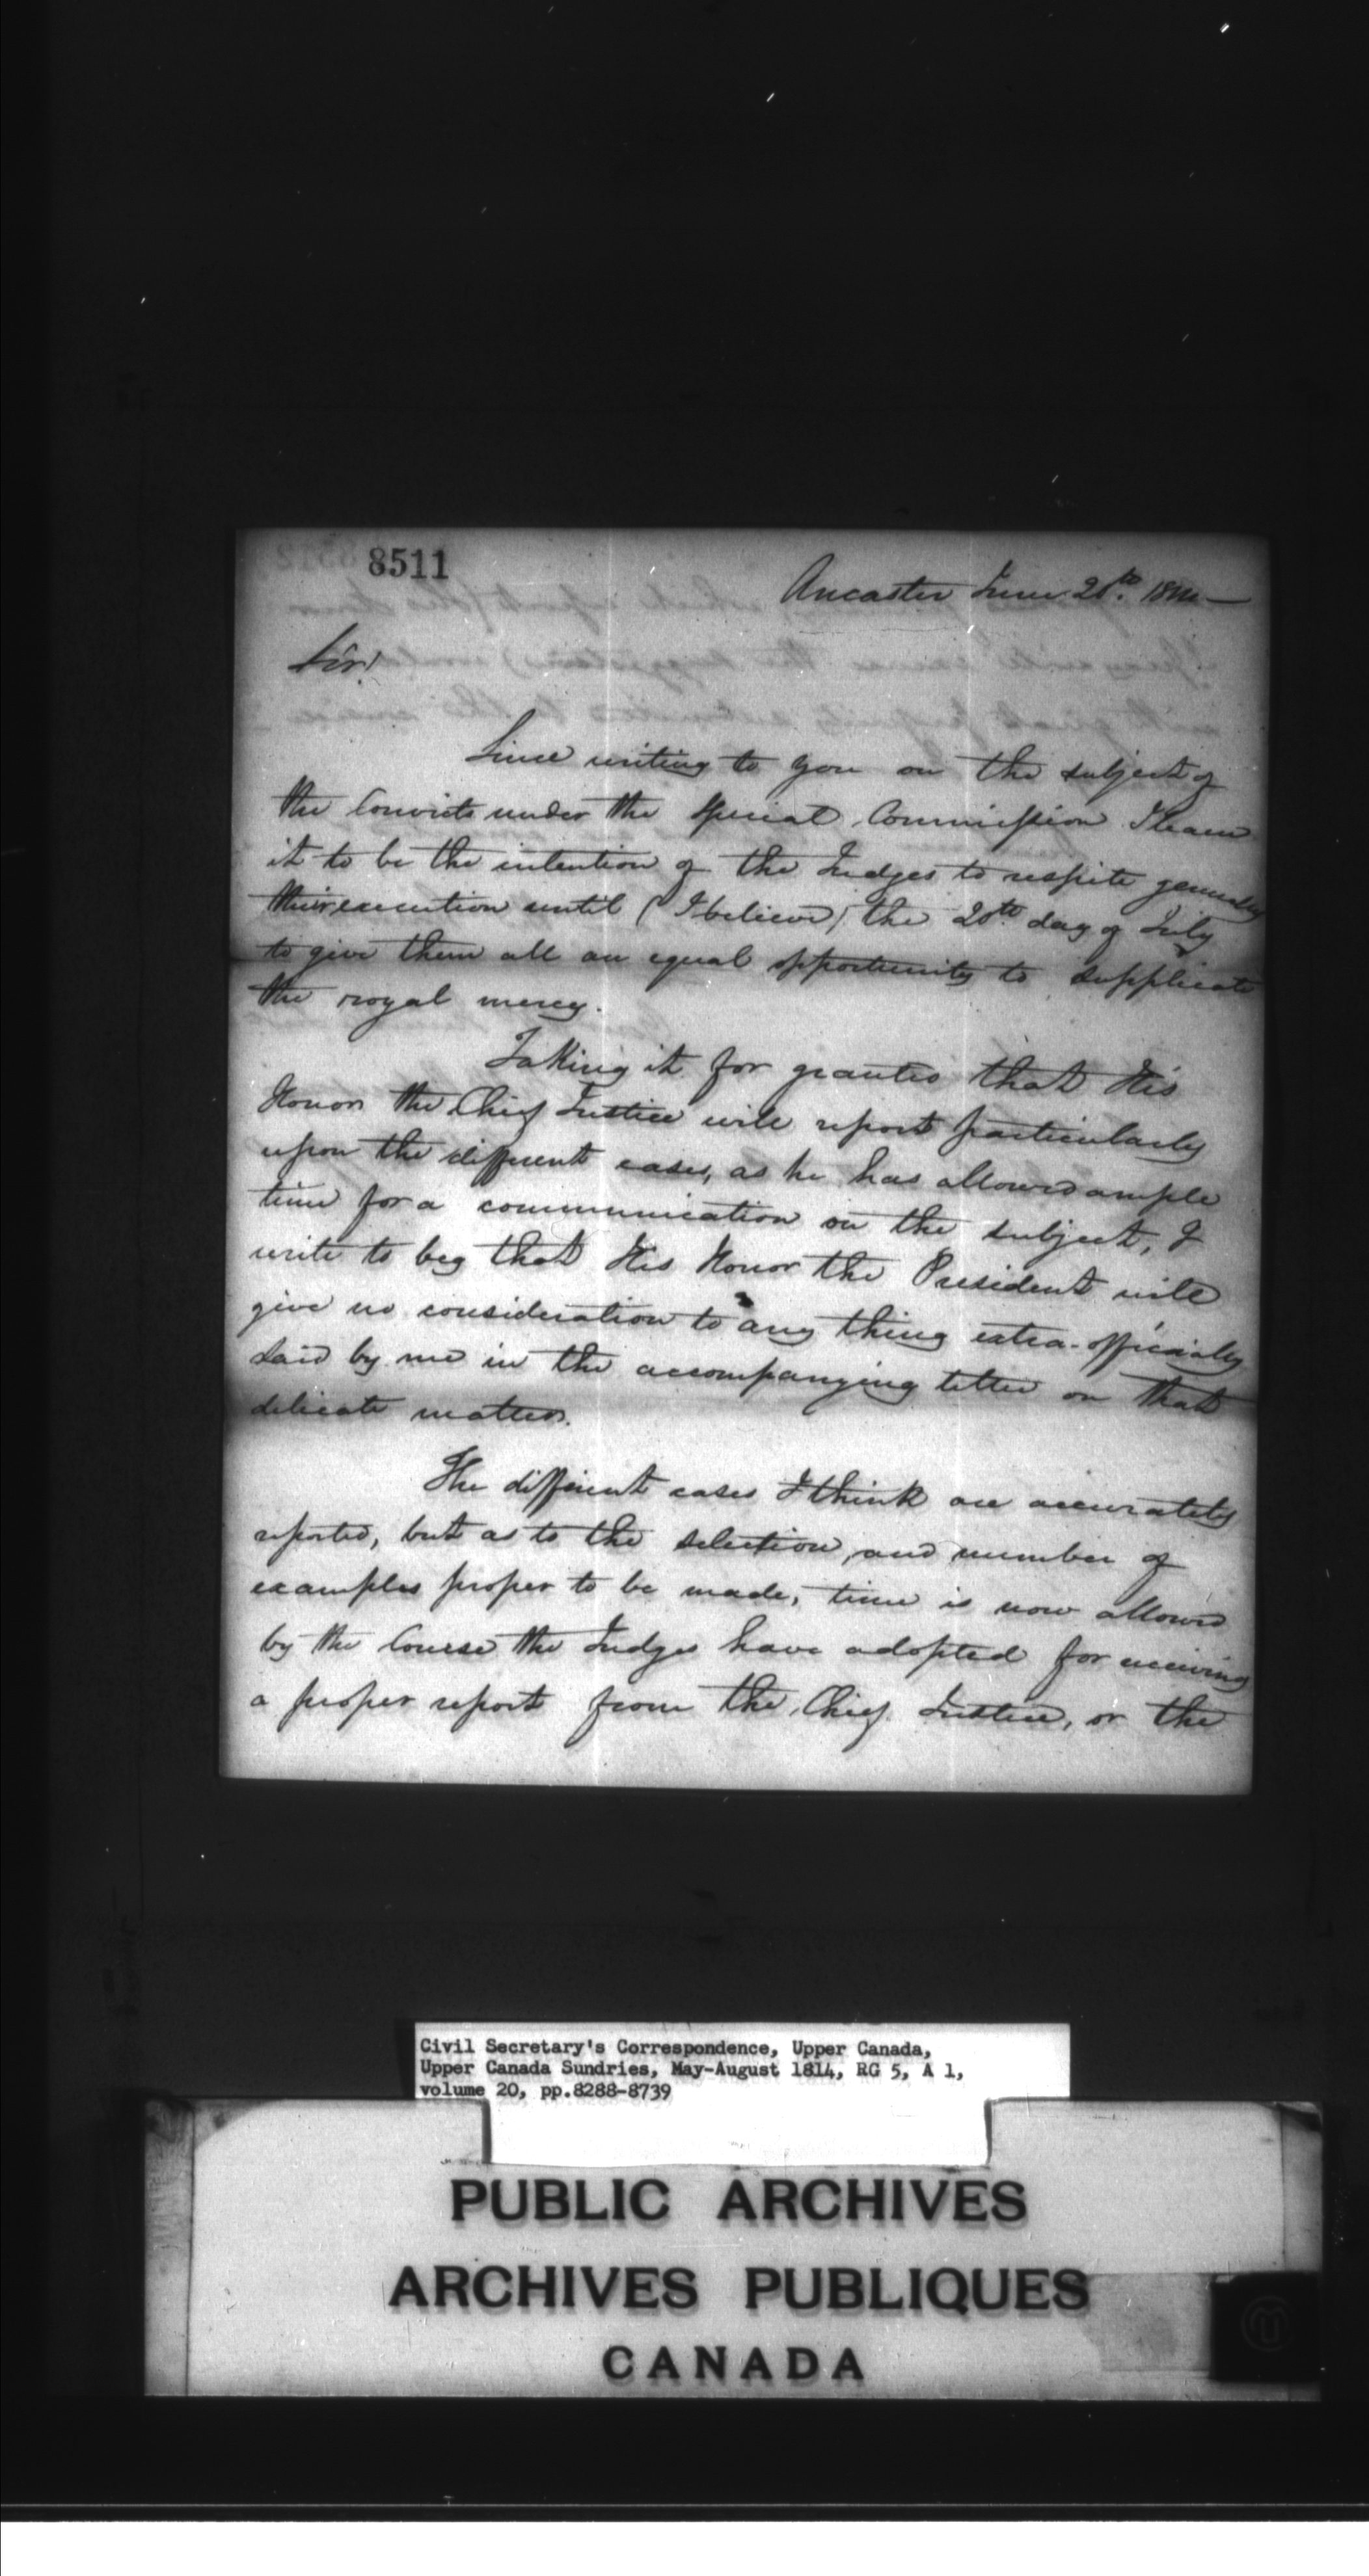 8511
Ancaster June 20th. 1814 —
Sir!
Since writing to you on the subject of
the Convicts under the special Commission I learn
it to be the intention of the Judges to respite generally
their execution until (I believe) the 20th day of July
to give them all an equal opportunity to supplicate
the royal mercy.
Taking it for granted that His
Honor the Chief Justice will report particularly
upon the different cases, as he has allowed ample
time for a communication on the subject, I
write to beg that His Honor the President will
give no consideration to any thing extra-officially
said by me in the accompanying letter on that
delicate matter.
The different cases I think are accurately
reported, but as to the selection, and number of
examples proper to be made, time is now allowed
by the Course the Judges have adopted for receiving
a proper report from the Chief Justice, or the
Civil Secretary's Correspondence, Upper Canada,
Upper Canada Sundries, May-August 1814, RG 5, A 1,
volume 20, pp.8288-8739
PUBLIC ARCHIVES
ARCHIVES PUBLIQUES
CANADA